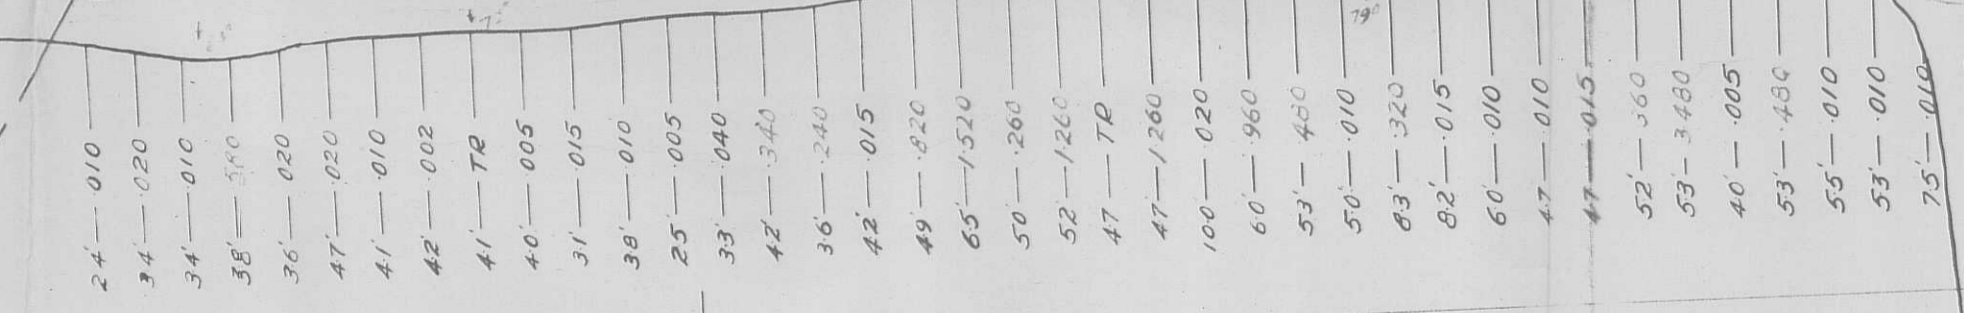 24'—.010
34'—.020
34'—.010
38'—
36'—.020
47'—.020
41'—.010
42'—.002
41'—TR
40'—.005
31'—.015
38'—.010
25'—.005
33'—.040
42'—.340
36'—.240
42'—.015
49'—.820
65'—1.520
50'—.260
52'—1.260
47—TR
47'—1.260
100'—.020
60'—.960
53'—
50'—.010
83'—.320
82'—.015
60'—.010
47—.010
47—.015
52'—.360
53'—3.480
40'—.005
53'—.480
55'—.010
53'—.010
75'—.010
790